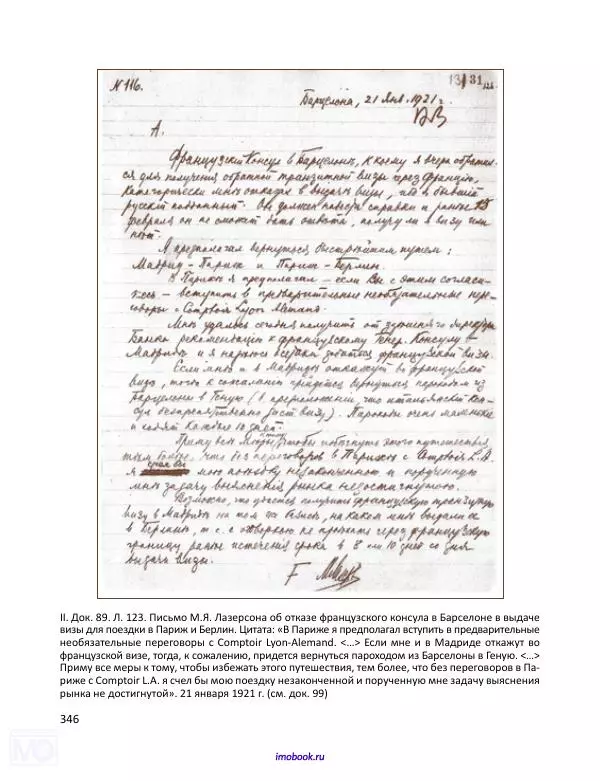 N 116.
131
Барцелона, 21 Янв. 1921 г.
А.
Французский Консул в Барцелоне, к коему я вчера обратил-
ся для получения обратной транзитной визы через Францию,
категорически мне отказал в выдаче визы, как бывший
русский подданный. Он должен навести справки и ранее 15
февраля он не сможет дать ответа, получу ли я визу или
нет.
Я предполагал вернуться быстрейшим путем:
Мадрид - Париж и Париж - Берлин.
В Париже я предполагал - если Вы с этим согласи-
тесь - вступить в предварительные необязательные пере-
говоры с Comptoir Lyon Alemand.
Мне удалось сегодня получить от здешнего директора
Банка рекомендацию к французскому Генер. Консулу в
Мадриде и я надеюсь добиться французской визы.
Если мне и в Мадриде откажут во французской
визе, тогда к сожалению придется вернуться пароходом из
Барцелоны в Геную (в предположении, что итальянский кон-
сул беспрепятственно даст визу). Пароходы очень маленькие
и ходят каждые 10 дней.
Приму все меры к тому, чтобы избегнуть этого путешествия,
тем более, что без переговоров в Париже с Comptoir L.A.
я счел бы мою поездку незаконченною и порученную
мне задачу выяснения рынка недостигнутою.
Возможно, что удастся получить французскую транзитную
визу в Мадриде на том же базисе, на каком мне выдали ее
в Берлине, т.е. с оговоркою не проехать через французскую
границу ранее истечения срока в 8 или 10 дней со дня
выдачи визы.
II. Док. 89. Л. 123. Письмо М.Я. Лазерсона об отказе французского консула в Барселоне в выдаче
визы для поездки в Париж и Берлин. Цитата: «В Париже я предполагал вступить в предварительные
необязательные переговоры с Comptoir Lyon-Alemand. <...> Если мне и в Мадриде откажут во
французской визе, тогда, к сожалению, придется вернуться пароходом из Барселоны в Геную. <...>
Приму все меры к тому, чтобы избежать этого путешествия, тем более, что без переговоров в Па-
риже с Comptoir L.A. я счел бы мою поездку незаконченной и порученную мне задачу выяснения
рынка не достигнутой». 21 января 1921 г. (см. док. 99)
346
imobook.ru